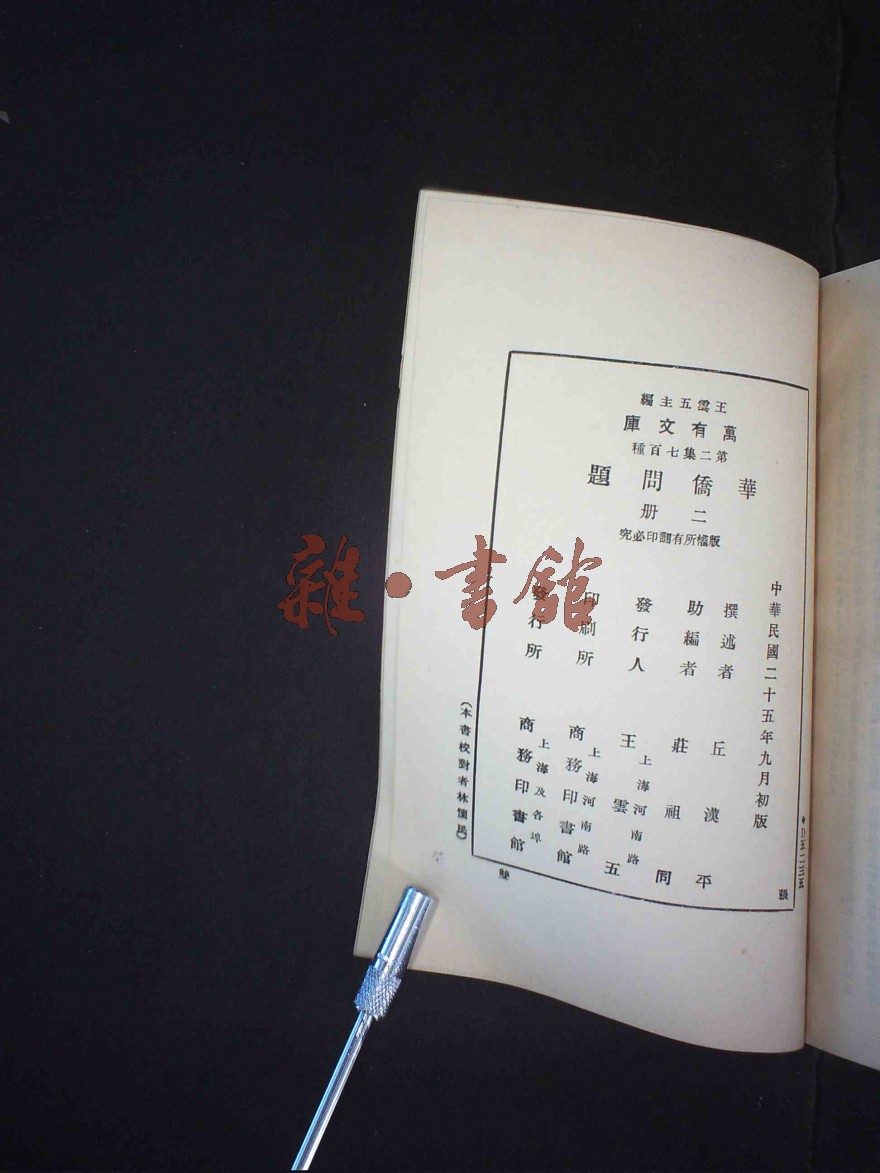 王雲五主編
萬有文庫
第二集七百種
華僑問題
二册
版權所有翻印必究
中華民國二十五年九月初版
撰述者 丘漢平
助編者 莊祖同
發行人 王雲五
上海河南路
印刷所 商務印書館
上海河南路
發行所 商務印書館
上海及各埠
(本書校對者林懷民)
雜·書館